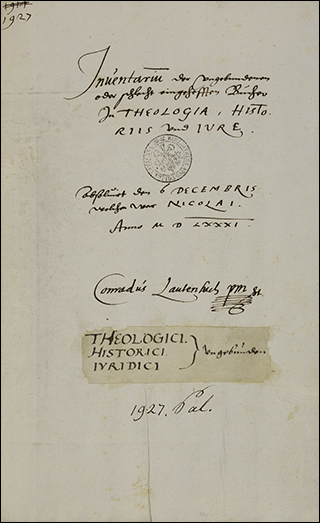 1917
1927
Inventariũ der ungebundenen
oder schlecht eingehefften Bücher
In THEOLOGIA, HISTO-
RIIS und IURE.
absoluirt den 6 DECEMBRIS
welcher war NICOLAI.
Anno M D LXXXI.
Conradus Lautenbach
THEOLOGICI.
HISTORICI.
IVRIDICI
ungebunden
1927. Pal.